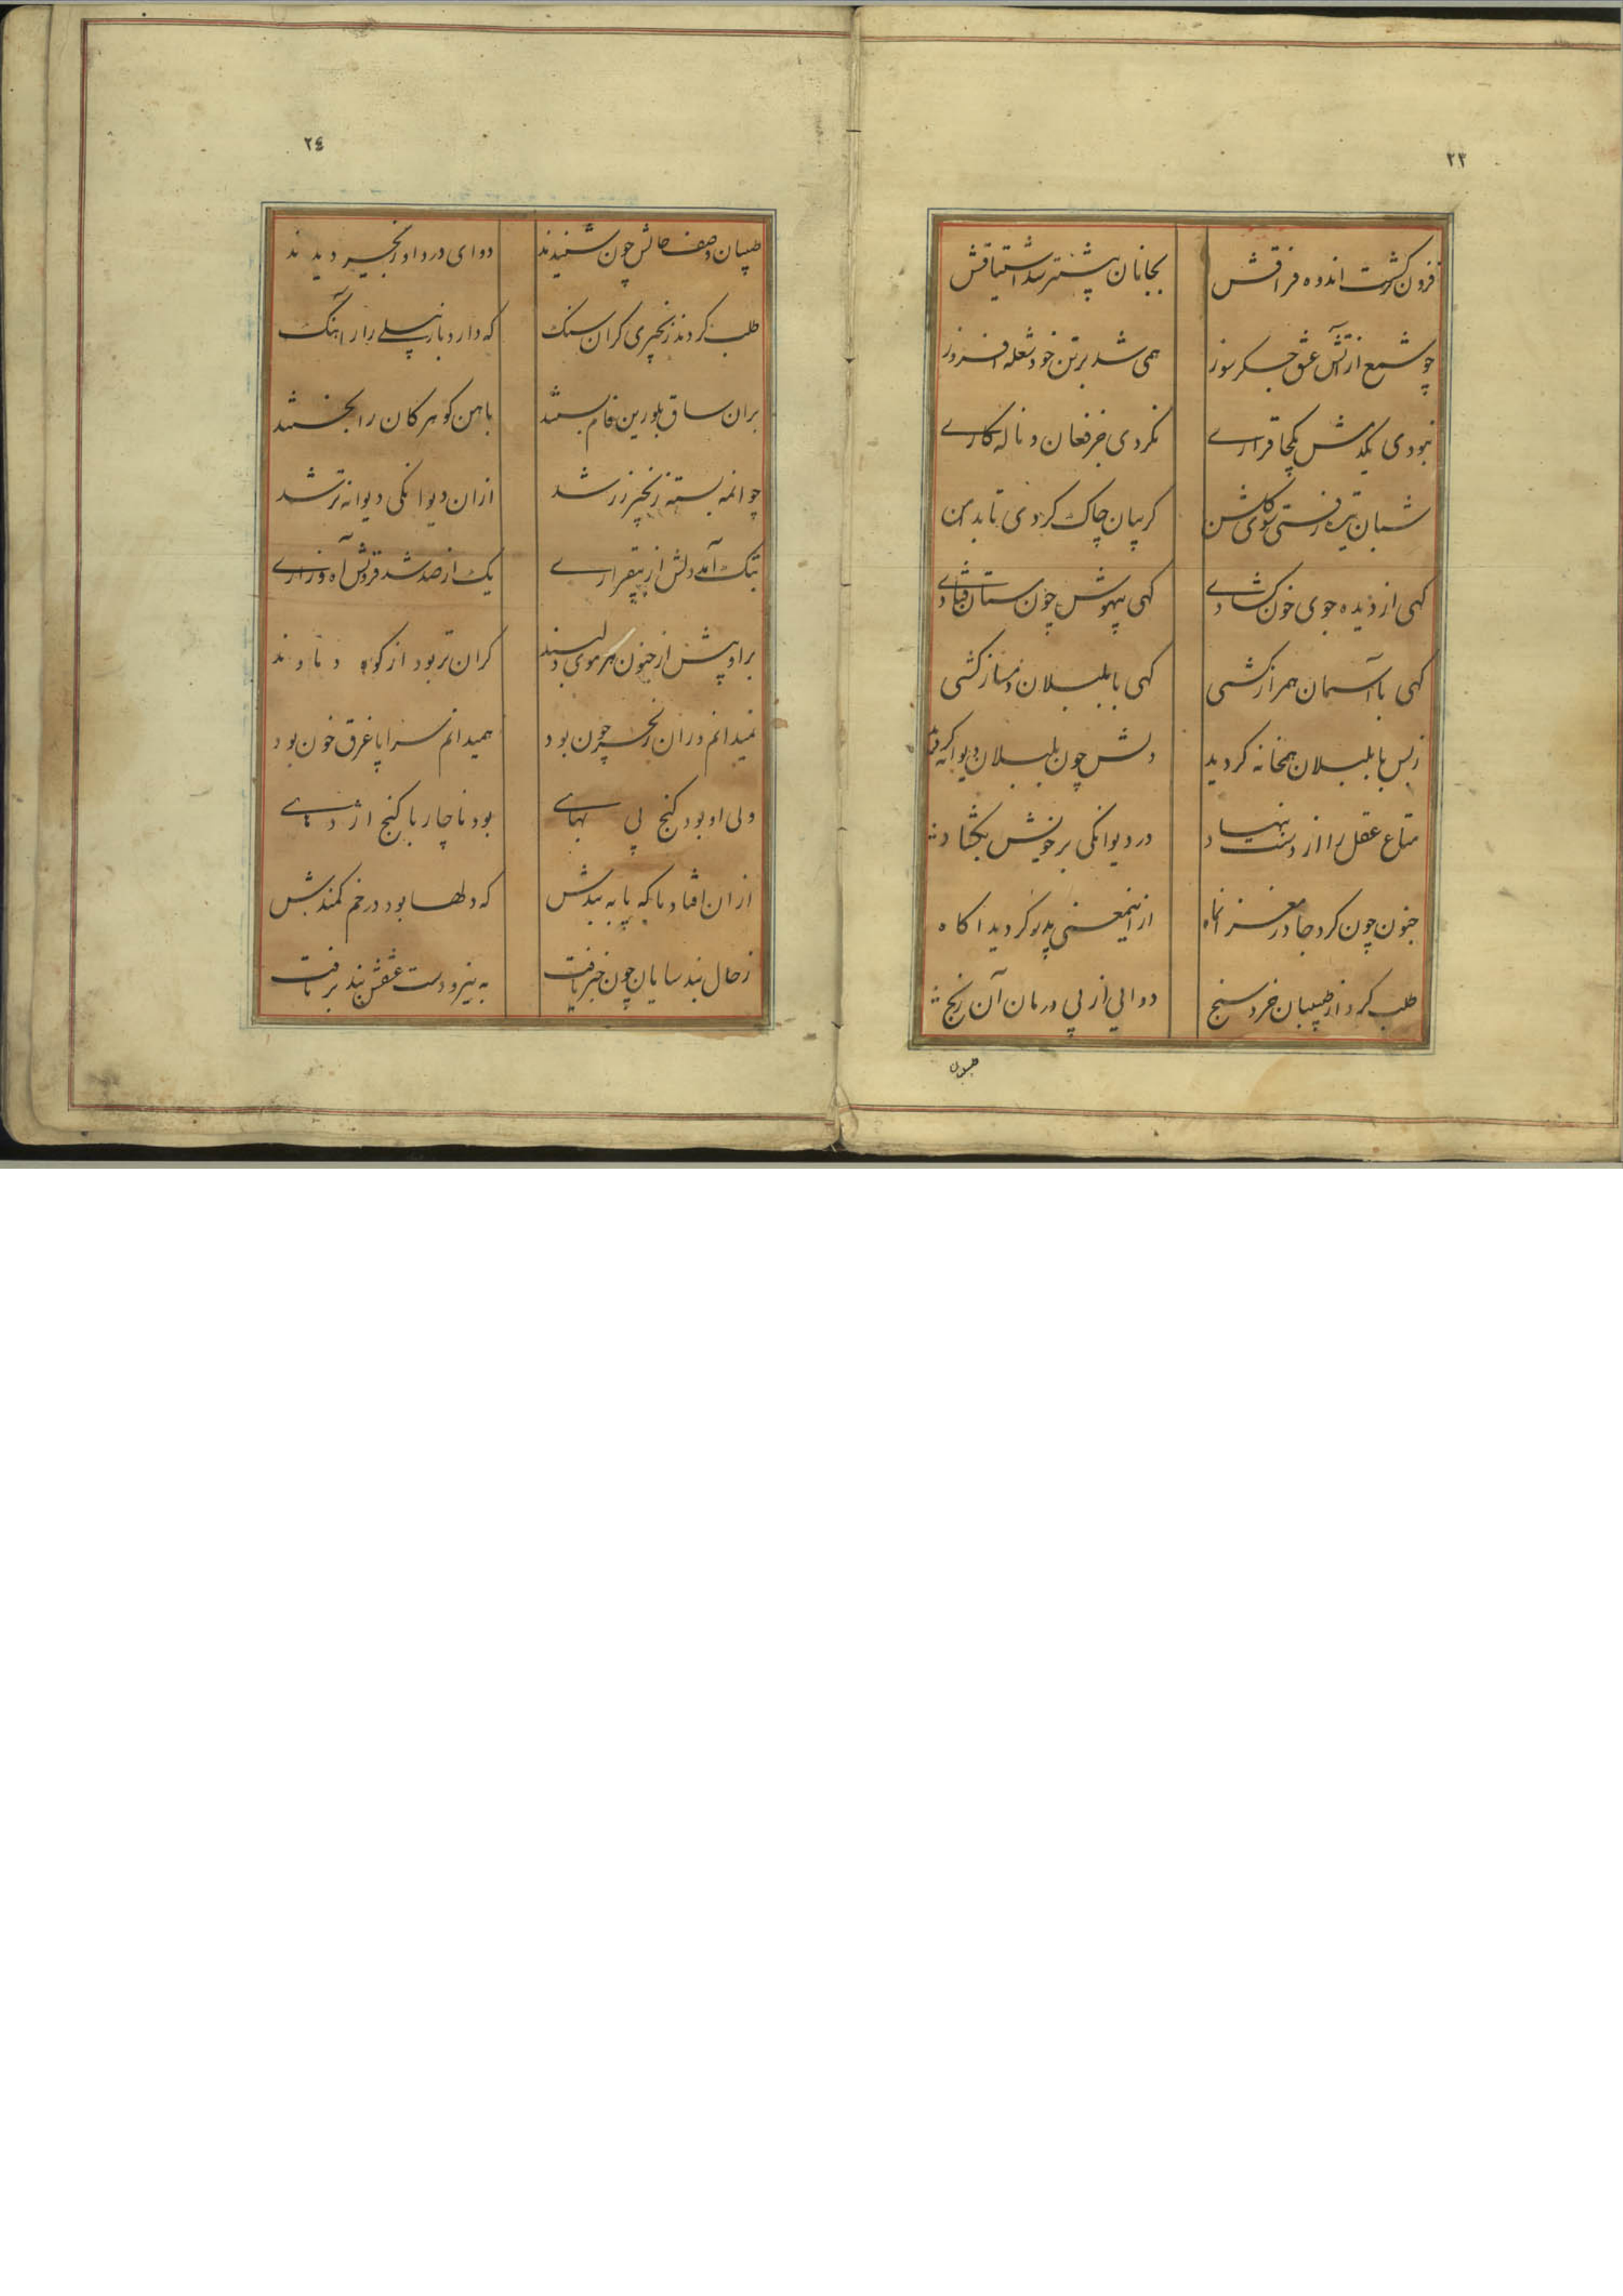 ٢٣
فزون گشت اندوه فراقش بجانان بیشتر شد اشتیاقش
چو شمع از آتش عشق جگرسوز همی شد برتن خود شعله افروز
نبودی یکدمش یکجا قرارے نکردی جز فغان و ناله کارے
شبان تیره رفتی سوی گلشن کریبان چاک کردی تا بدامن
کهی از دیده جوی خون کشادے کهی بیهوش چون مستان فتادے
کهی با آسمان همراز کشتی کهی با بلبلان دمساز کشتی
زبس با بلبلان همخانه کردید دلش چون بلبلان دیوانه کردید
متاع عقل را از دست بنهاد در دیوانکی برخویش بکشاد
جنون چون کرد جا در مغز آنماه ازینمعنی پدر کردید اکاه
طلب کرد از طبیبان خرد سنج دوایی از پی درمان آن رنج
طبیبان
٢٤
طبیبان وصف حالش چون شنیدند دوای درد او زنجیر دیدند
طلب کردند زنجیری کران سنک که دارد باز پیلے را ز اهنک
بران ساق بلورین فام بستند باهن کوهر کان را بخستند
چو انمه بسته زنجیر زر شد ازان دیوانکی دیوانه تر شد
بتنک آمد دلش از بیقرارے یک از صد شد فزونش آه و زارے
براو بیش از جنون هر موی دلبند کران تر بود از کوه دماوند
نمیدانم دران زنجیر چون بود همیدانم سراپا غرق خون بود
ولی او بود کنج بی بهاے بود ناچار با کنج اژدهاے
ازان افتاد ماکه پا به بندش که دلها بود در خم کمندش
زحال بند سایان چون خبر یافت به نیرو دست عشقش بند برتافت